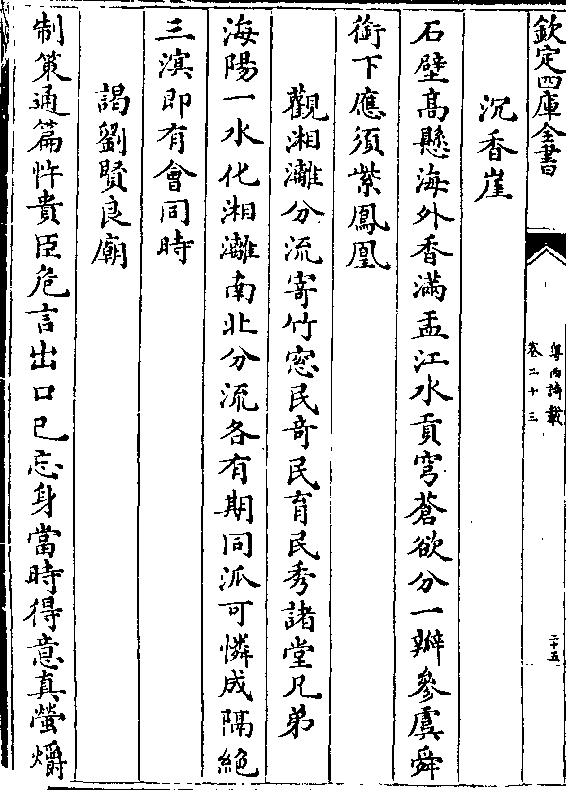 欽定四庫全書
粵西詩載
卷二十三
二十五
沉香崖
石壁髙懸海外香滿盂江水貢穹蒼欲分一瓣參虞舜
銜下應須紫鳳凰
觀湘灕分流寄竹窓民竒民育民秀諸堂兄弟
海陽一水化湘灕南北分流各有期同派可憐成隔絶
三溟即有會同時
謁劉賢良廟
制策通篇忤貴臣危言出口已忘身當時得意真螢爝